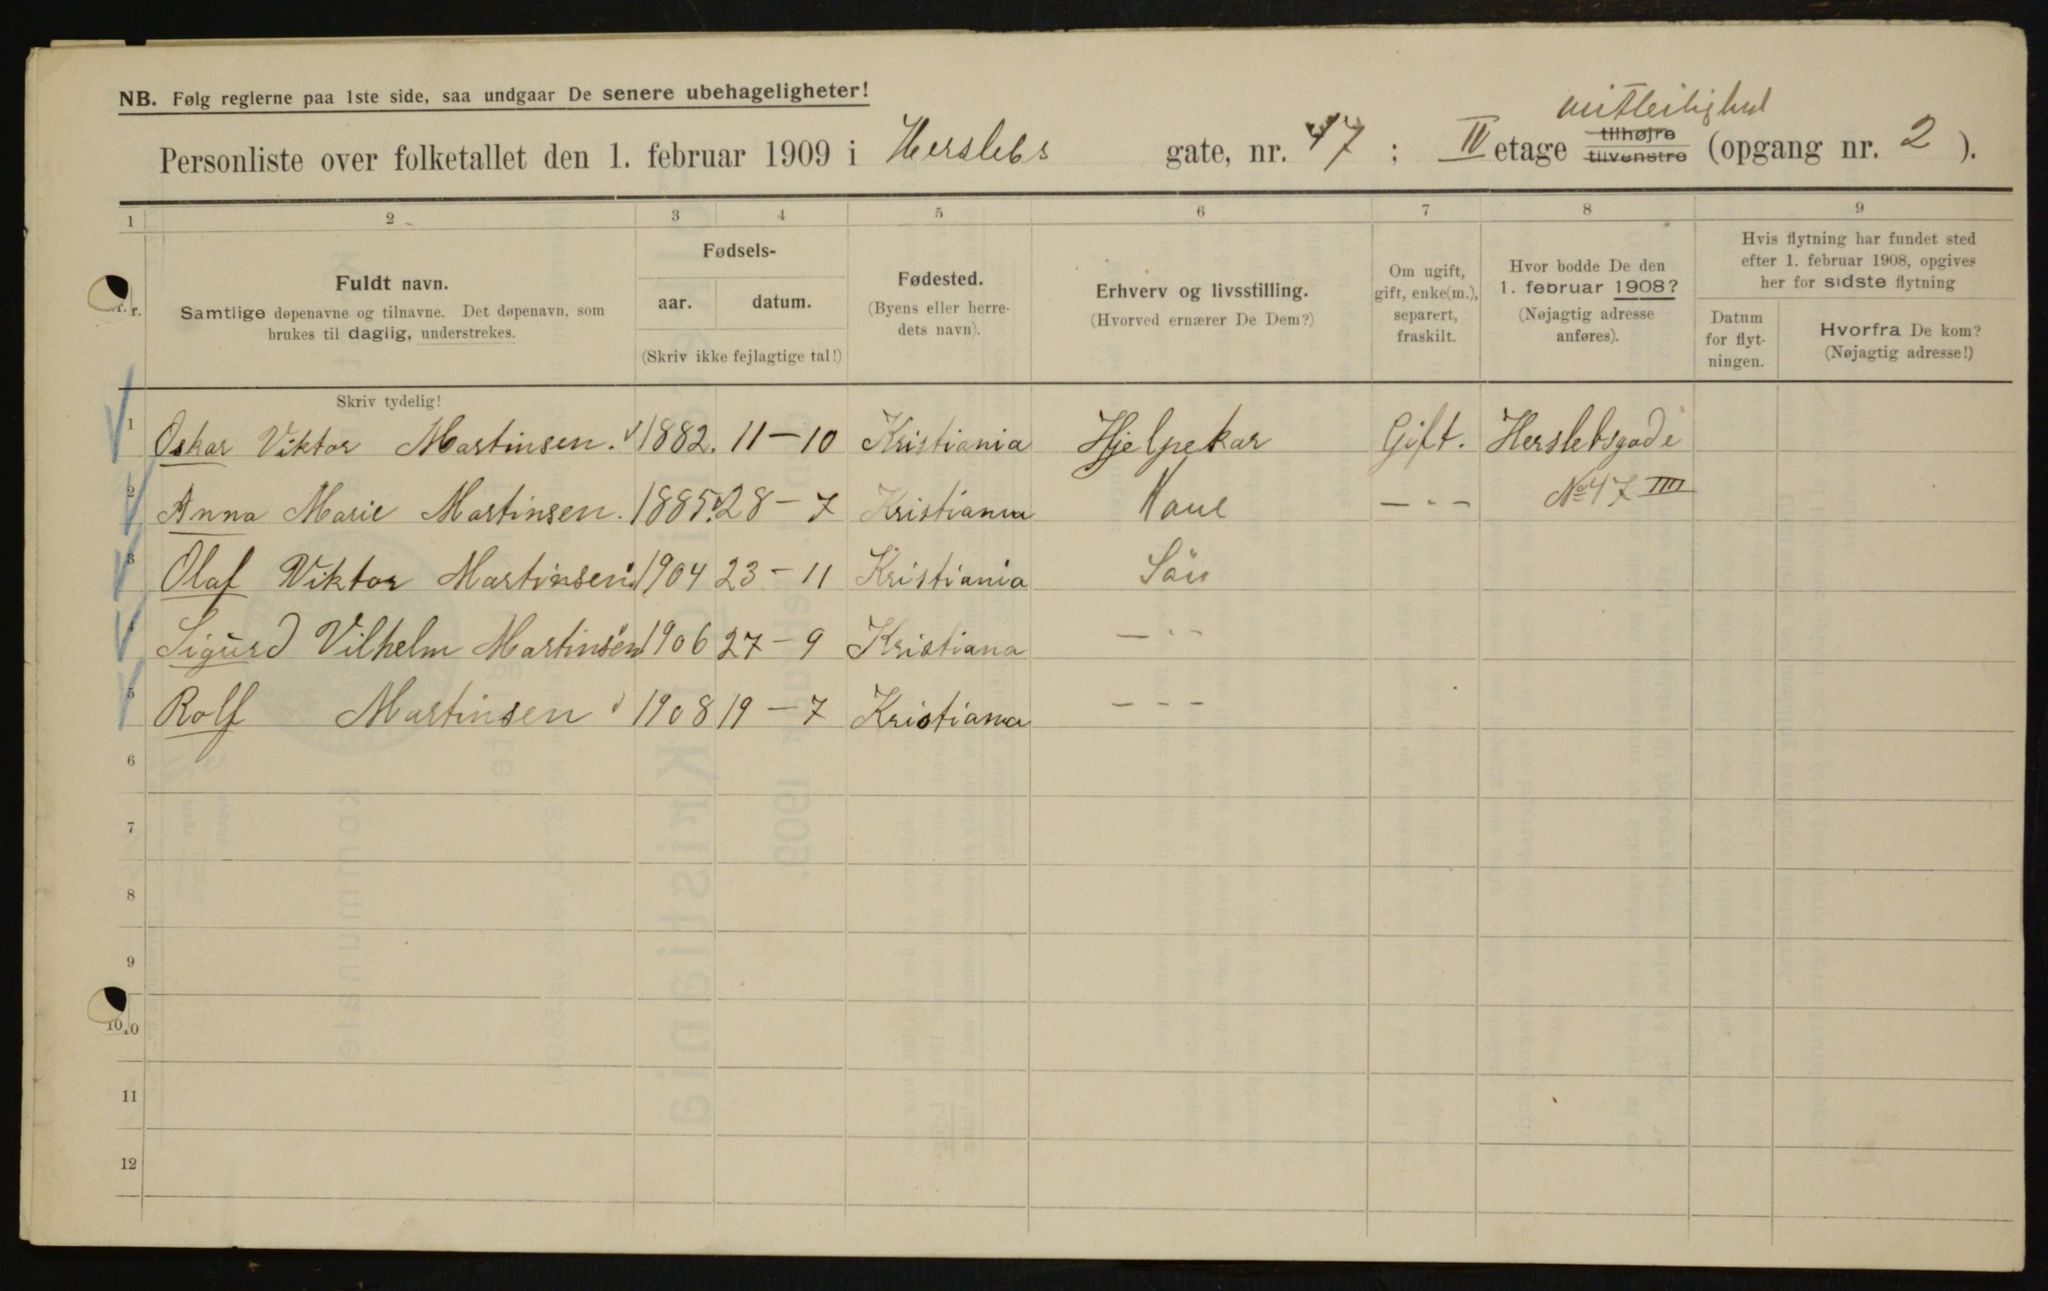 NB. Følg reglerne paa 1ste side, saa undgaar De senere ubehageligheter!
Personliste over folketallet den 1. februar 1909 i Herslebs gate, nr. 47 ; IV etage tilhøjre tilvenstre (opgang nr. 2 ).
1 2 3 4 5 6 7 8 9
Fuldt navn.
Samtlige døpenavne og tilnavne. Det døpenavn, som
brukes til daglig, understrekes.
Fødsels-
aar. datum.
(Skriv ikke fejlagtige tal!)
Fødested.
(Byens eller herre-
dets navn).
Erhverv og livsstilling.
(Hvorved ernærer De Dem?)
Om ugift,
gift, enke(m.),
separert,
fraskilt.
Hvor bodde De den
1. februar 1908?
(Nøjagtig adresse
anføres).
Hvis flytning har fundet sted
efter 1. februar 1908, opgives
her for sidste flytning
Datum
for flyt-
ningen.
Hvorfra De kom?
(Nøjagtig adresse!)
Skriv tydelig!
1 Oskar Viktor Martinsen. 1882. 11-10 Kristiania Hjelpekar Gift. Herslebsgade
2 Anna Marie Martinsen. 1885. 28-7 Kristiania Kone - " - No 47 IIII
3 Olaf Viktor Martinsen 1904 23-11 Kristiania Sön
4 Sigurd Vilhelm Martinsen 1906 27-9 Kristiana - " -
5 Rolf Martinsen 1908 19-7 Kristiana - - -
6
7
8
9
10
11
12